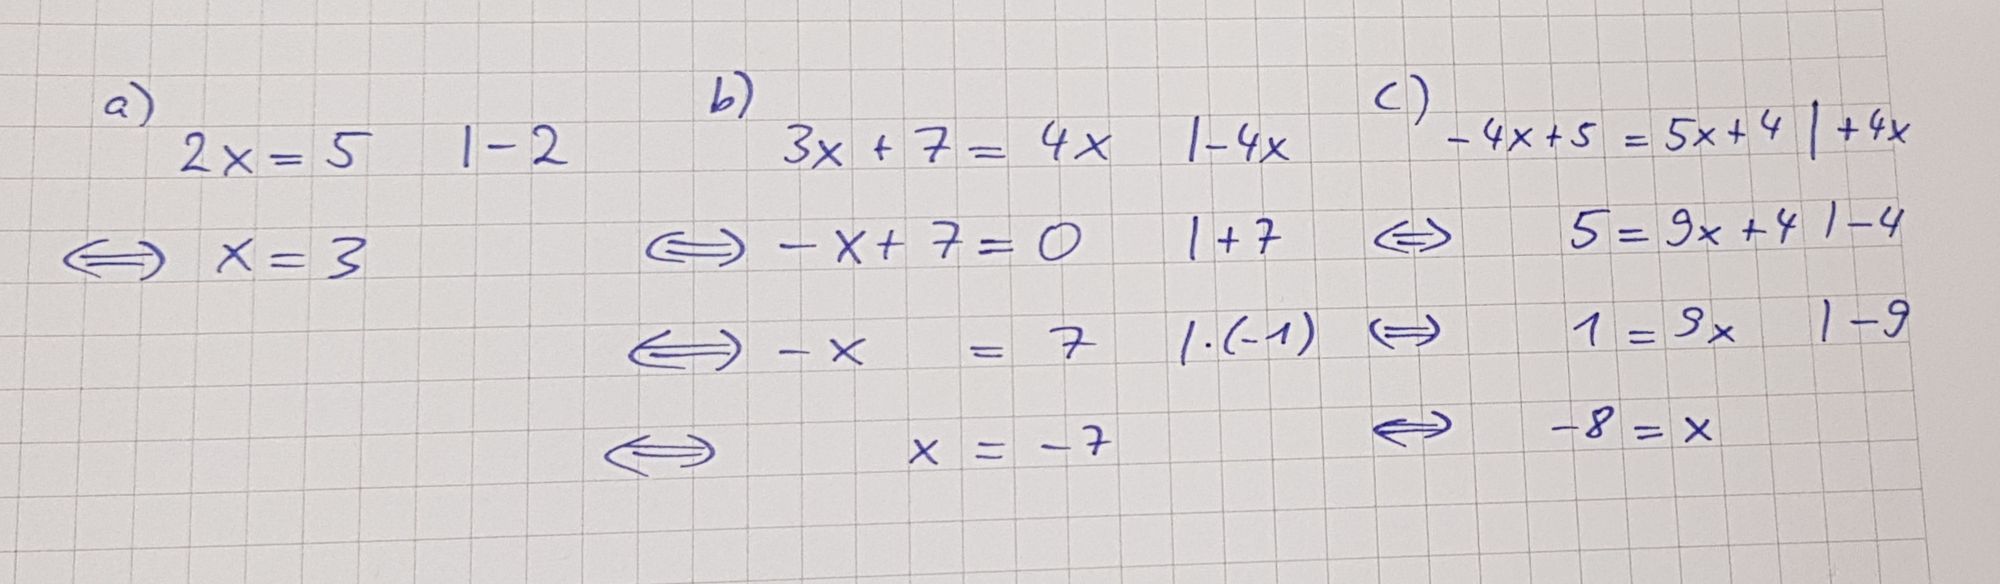 a)
2x = 5 | - 2
⟺ x = 3
b)
3x + 7 = 4x | - 4x
⟺ - x + 7 = 0 | + 7
⟺ - x = 7 | · (-1)
⟺ x = - 7
c)
- 4x + 5 = 5x + 4 | + 4x
⟺ 5 = 9x + 4 | - 4
⟺ 1 = 9x | - 9
⟺ - 8 = x